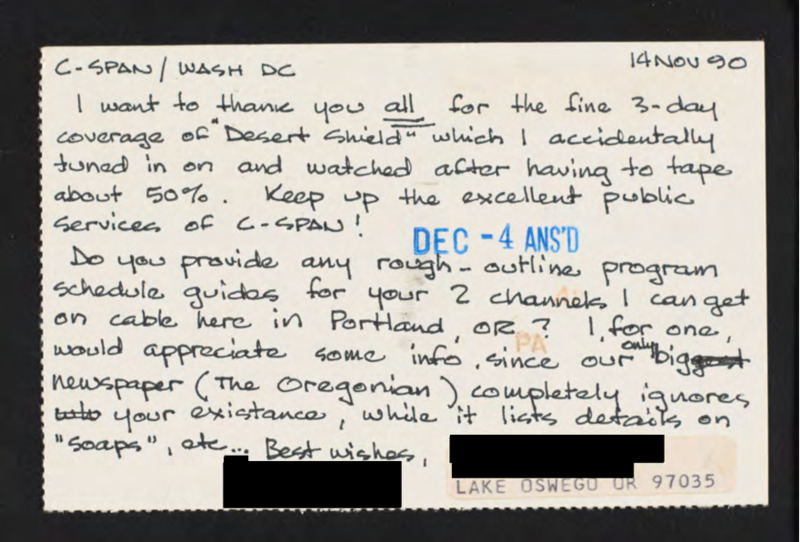 C-SPAN / WASH DC 14 NOV 90
I want to thank you all for the fine 3-day
coverage of "Desert Shield" which I accidentally
tuned in on and watched after having to tape
about 50%. Keep up the excellent public
services of C-SPAN!
DEC -4 ANS'D
Do you provide any rough-outline program
schedule guides for your 2 channels I can get
on cable here in Portland, OR? I, for one,
would appreciate some info, since our only big
newspaper (The Oregonian) completely ignores
your existance, while it lists details on
"soaps", etc... Best wishes,
LAKE OSWEGO OR 97035
PA